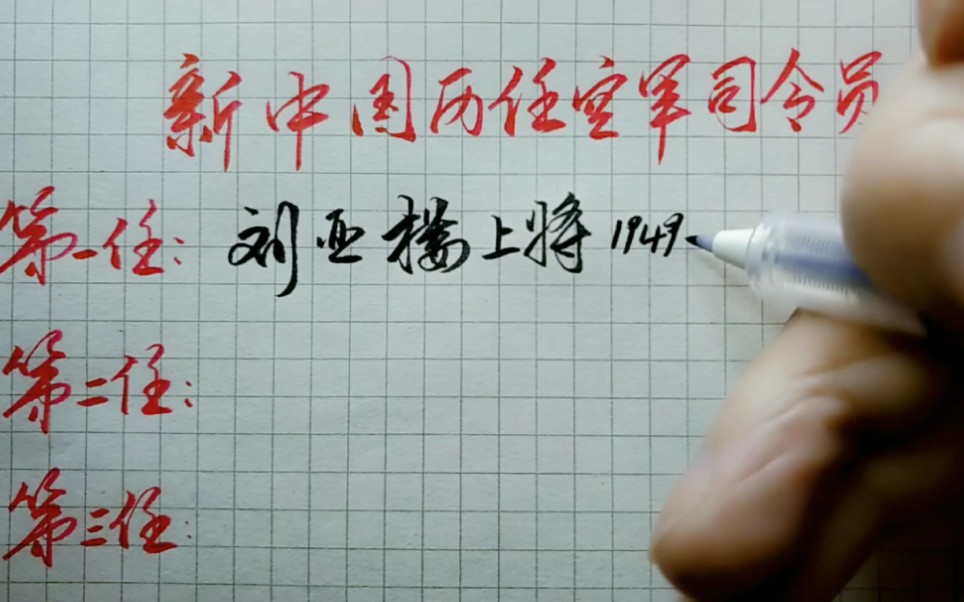 新中国历任空军司令员
第一任：刘亚楼上将 1949-
第二任：
第三任：